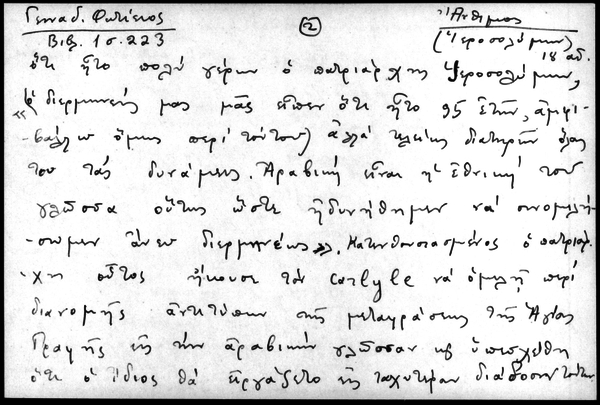 Γενναδ. Φωτίειος
Βιβ. 1 σ. 223
2
Ἄνθιμος
(Ἱεροσολύμων)
18 αἰ.
ὅτι ἦτο πολύ γέρων ὁ πατριάρχης Ἱεροσολύμων,
«(ὁ διερμηνεύς μας μᾶς εἶπεν ὅτι ἦτο 95 ἐτῶν, ἀμφι-
-βάλλω ὅμως περί τούτου) ἀλλά πλείης διατηρῶν ὅλας
του τάς δυνάμεις. Ἀραβική εἶναι ἡ ἐθνική του
γλῶσσα οὕτως ὥστε ἠδυνήθημεν νά συνομιλή-
-σωμεν ἄνευ διερμηνέως». Κατενθουσιασμένος ὁ πατριάρ-
-χης οὗτος ἤκουσε τόν Carlyle νά ὁμιλῇ περί
διανομῆς ἀντιτύπων τῆς μεταφράσεως τῆς Ἁγίας
Γραφῆς εἰς τήν ἀραβικήν γλῶσσαν καί ὑπεσχέθη
ὅτι ὁ ἴδιος θά εἰργάζετο εἰς ταχυτέραν διάδοσιν τούτων